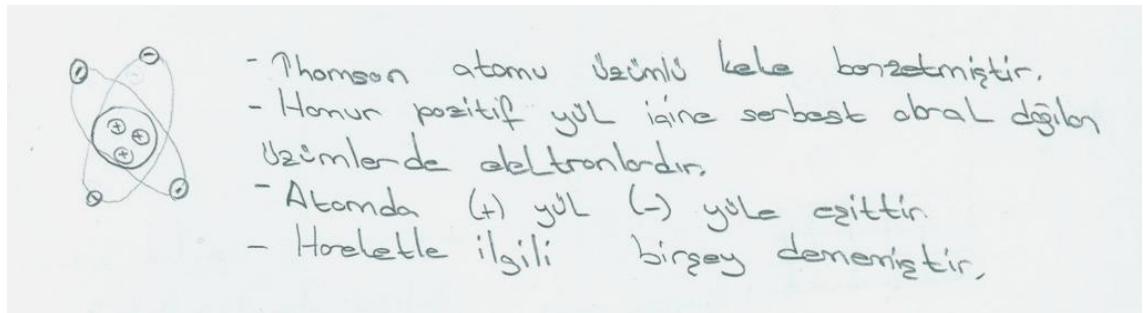 - Thomson atomu üzümlü keke benzetmiştir.
- Hamur pozitif yük içine serbest olarak dağılan
üzümlerde elektronlardır.
- Atomda (+) yük (-) yüke eşittir
- Hareketle ilgili birşey dememiştir.